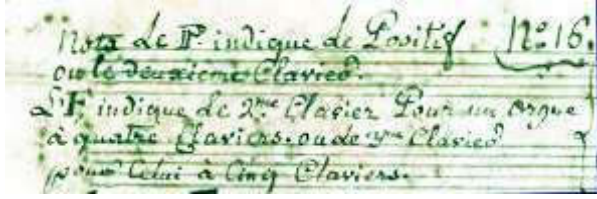 Nota Le P. indique Le Positif N.o 16.
ou le deuxieme Clavier.
L'F indique Le 2.me Clavier Pour un orgue
à quatre Claviers. ou de Clavier
pour Celui à Cinq Claviers.